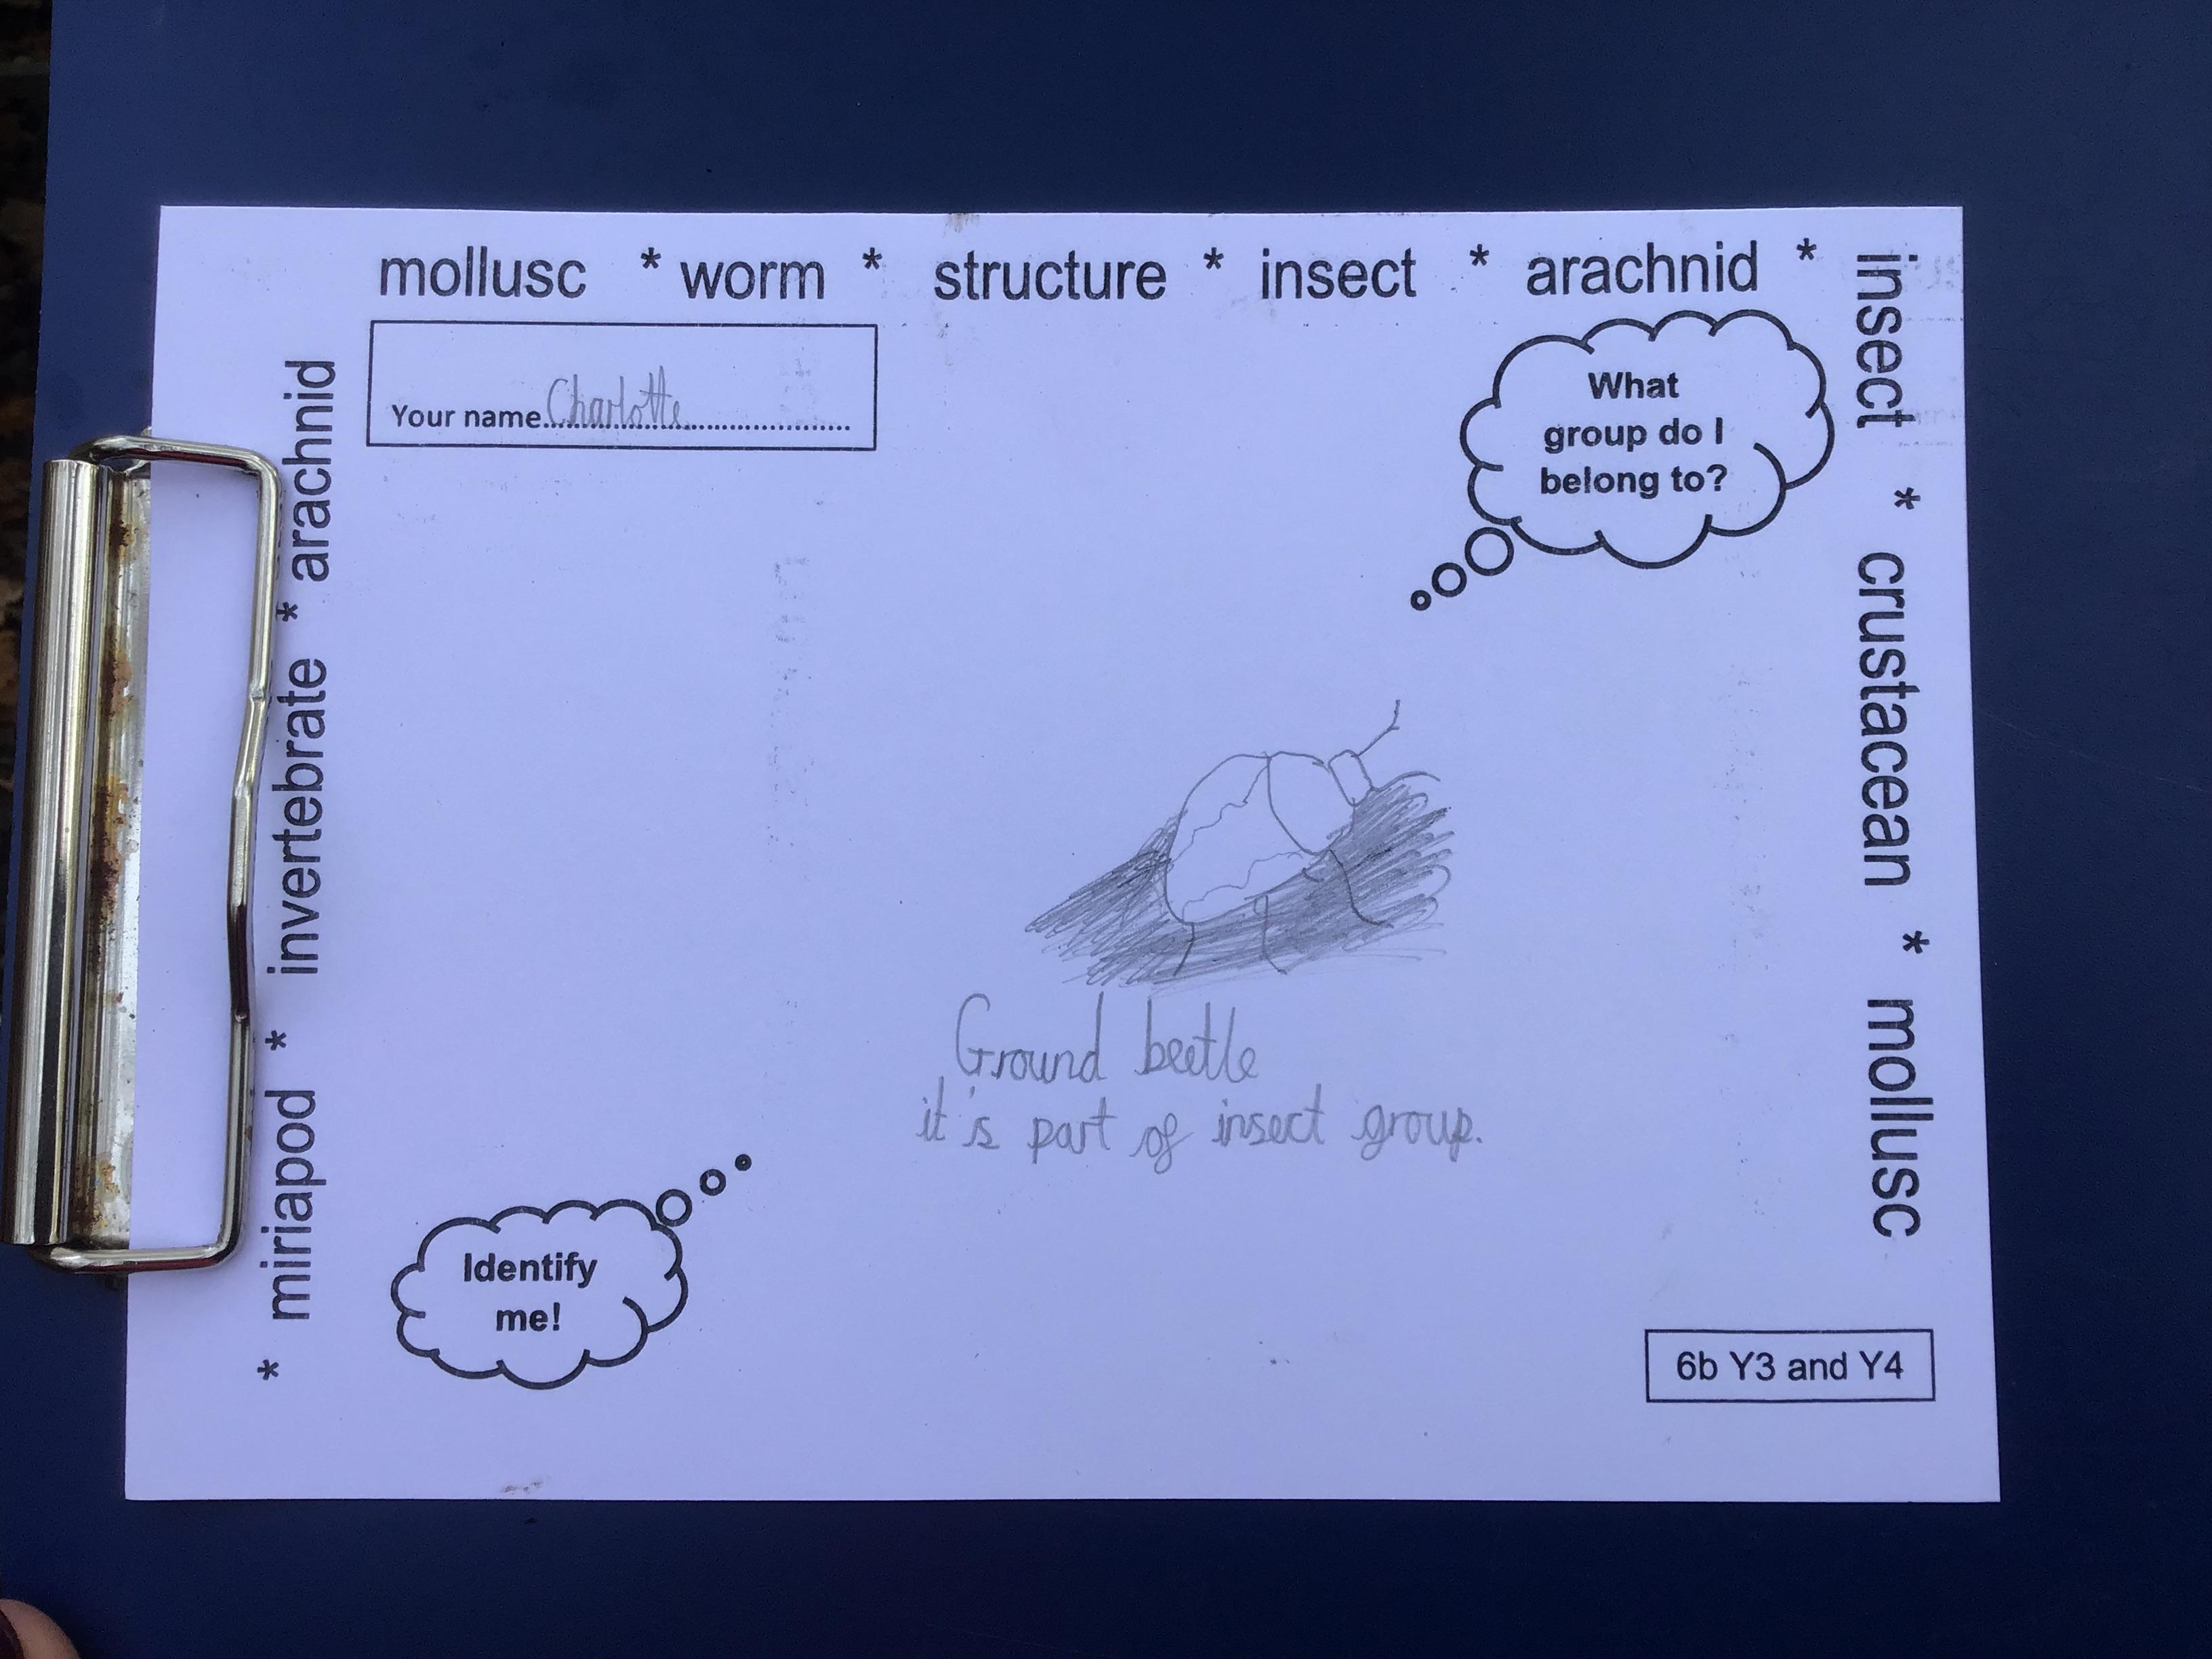 mollusc * worm * structure * insect * arachnid *
insect * crustacean * mollusc
* miriapod * invertebrate * arachnid
Your name Charlotte
What
group do I
belong to?
Ground beetle
it's part of insect group.
Identify
me!
6b Y3 and Y4